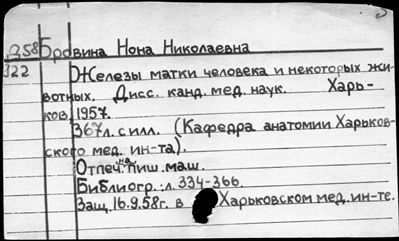 Д58 Бровина Нона Николаевна
322 Железы матки человека и некоторых жи-
вотных. Дисс. канд. мед. наук. Харь-
ков, 1957.
367л. с илл. (Кафедра анатомии Харьков-
ского мед. ин-та).
Отпеч. на пиш. маш.
Библиогр.: л. 334-366.
Защ. 16.9.58г. в Харьковском мед. ин-те.